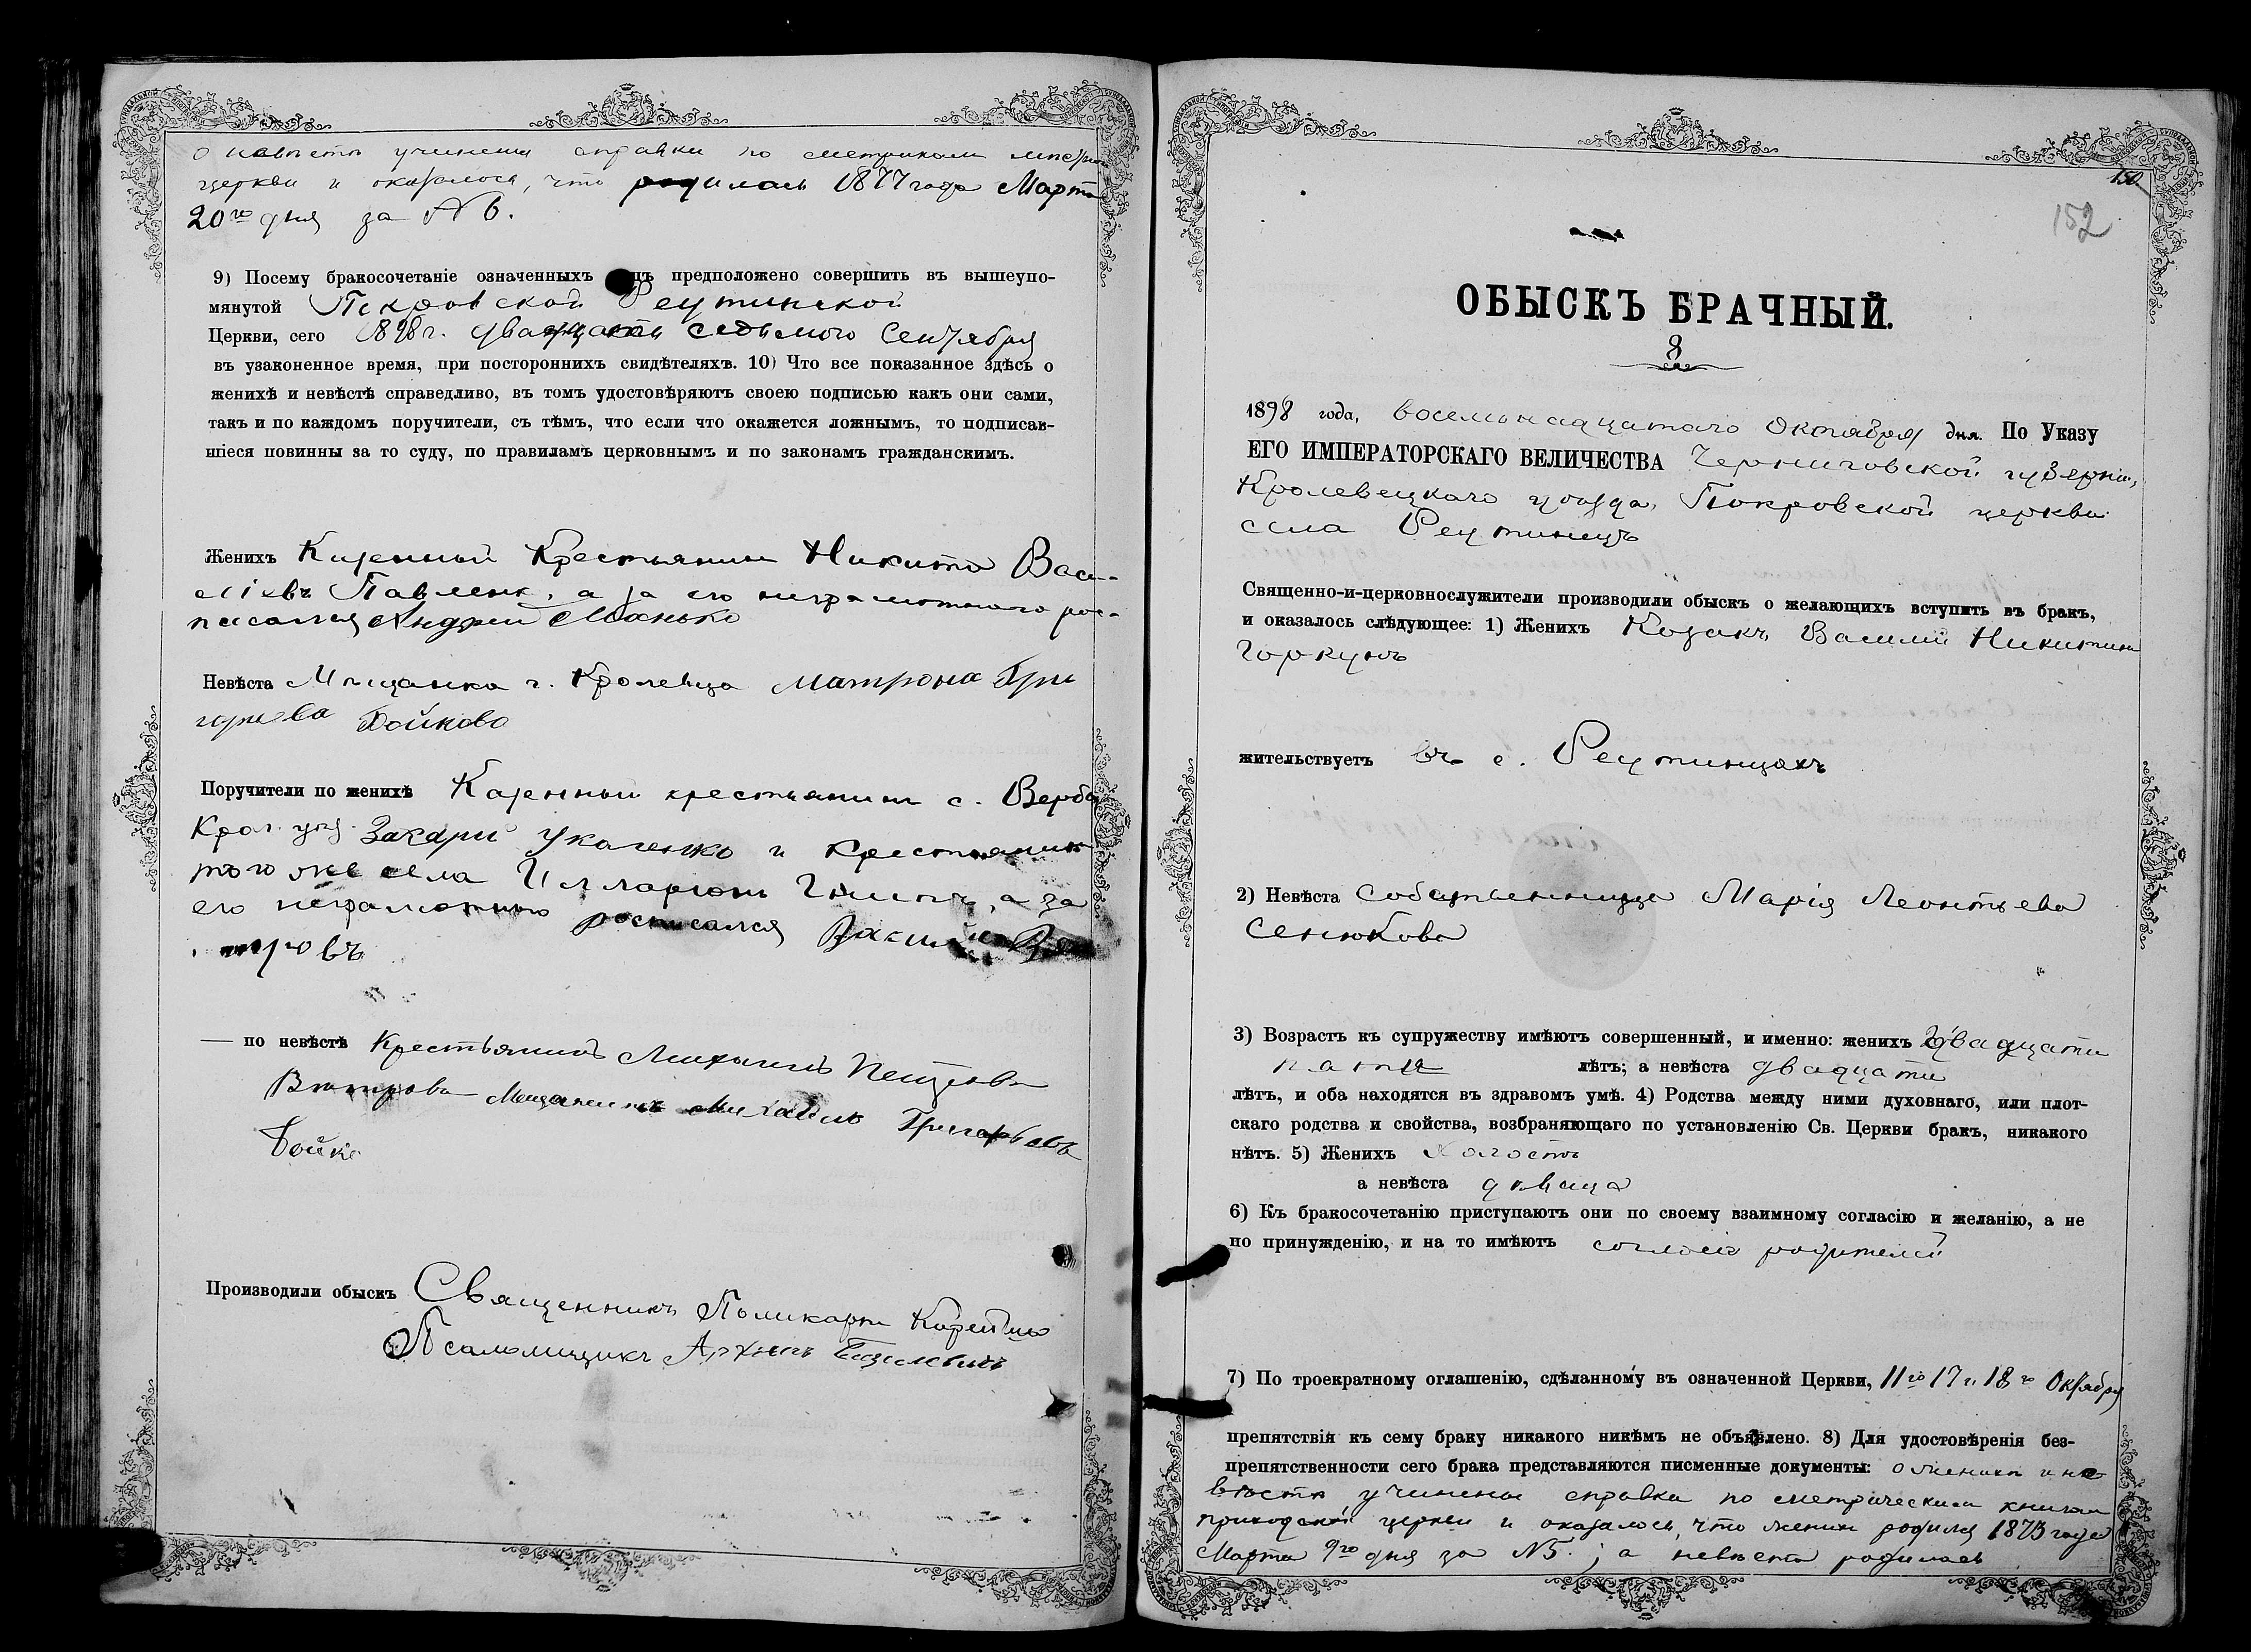 о невѣстѣ учинена справка по метрикамъ
церкви и оказалось, что родилась 1877 года Марта
20го дня за № 6.
9) Посему бракосочетаніе означенныхъ предположено совершить въ вышеупо-
мянутой Покровской Реутинской
Церкви, сего 1898 г. двадцать седьмого Сентября
въ узаконенное время, при постороннихъ свидѣтеляхъ. 10) Что все показанное здѣсь о
женихѣ и невѣстѣ справедливо, въ томъ удостовѣряютъ своею подписью какъ они сами,
такъ и по каждомъ поручители, съ тѣмъ, что если что окажется ложнымъ, то подписав-
шіеся повинны за то суду, по правиламъ церковнымъ и по законамъ гражданскимъ.
Женихъ Казенный Крестьянинъ Никита Васи-
ліевъ Павленк, а за его неграмотнаго рос-
писался Андрей Манько
Невѣста Мѣщанка г. Кролевца Матрона Гри
горьева Бойкова
Поручители по женихѣ Казенный крестьянинъ с. Верба
Крол. уѣз. Захарій и крестьянинъ
того же села Илларіонъ а за
его неграмотнаго росписался
— по невѣстѣ Крестьянинъ
Мѣщанинъ Михаилъ Григорьевъ
Бойко
Производили обыскъ Священникъ Поликарпъ
Псаломщикъ Архипъ
150
152
ОБЫСКЪ БРАЧНЫЙ.
8
1898 года, восемьнадцатаго Октября дня. По Указу
ЕГО ИМПЕРАТОРСКАГО ВЕЛИЧЕСТВА Черниговской губерніи,
Кролевецкаго уѣзда, Покровской церкви
села Реутинецъ
Священно-и-церковнослужители производили обыскъ о желающихъ вступить въ бракъ,
и оказалось слѣдующее: 1) Женихъ Козакъ Василій Никитинъ
Горкунъ
жительствуетъ въ с. Реутинцахъ
2) Невѣста Собственница Марія Леонтьева
Сенюкова
3) Возрастъ къ супружеству имѣютъ совершенный, и именно: женихъ двадцати
пяти лѣтъ; а невѣста двадцати
лѣтъ, и оба находятся въ здравомъ умѣ. 4) Родства между ними духовнаго, или плот-
скаго родства и свойства, возбраняющаго по установленію Св. Церкви бракъ, никакого
нѣтъ. 5) Женихъ холостъ
а невѣста дѣвица
6) Къ бракосочетанію приступаютъ они по своему взаимному согласію и желанію, а не
по принужденію, и на то имѣютъ согласіе родителей
7) По троекратному оглашенію, сдѣланному въ означенной Церкви, 11го 17 и 18го Октября
препятствія къ сему браку никакого никѣмъ не объявлено. 8) Для удостовѣренія без-
препятственности сего брака представляются писменные документы: о женихѣ и не
вѣстѣ учинена справка по метрическимъ книгамъ
приходской церкви и оказалось, что женихъ родился 1873 года
Марта 9го дня за № 5.; а невѣста родилась